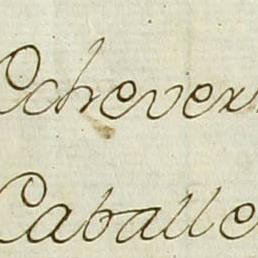 Echever
Caballe